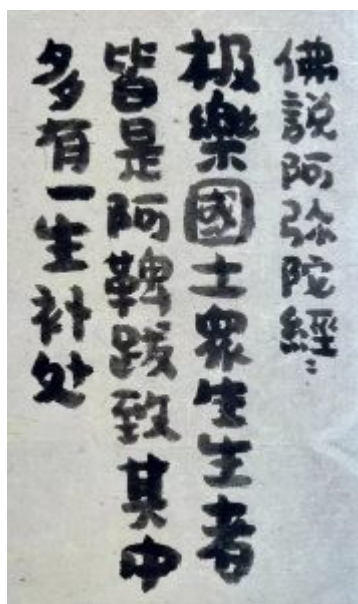 佛説阿弥陀經：
极樂國土眾生生者
皆是阿鞞跋致其中
多有一生补处